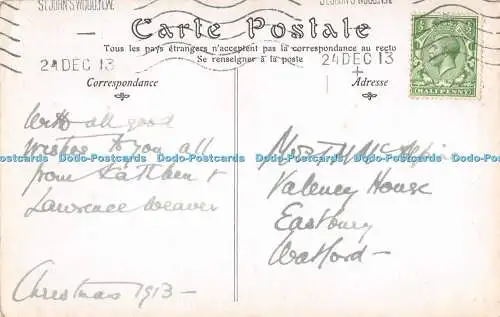 ST JOHN'S WOOD, N.W.
ST JOHN'S WOOD, N.W.
Carte Postale
Tous les pays étrangers n'acceptent pas la correspondance au recto
Se renseigner à la poste
24 DEC 13
24 DEC 13
Correspondance
Adresse
HALFPENNY
With all good
wishes to you all
from Kathleen &
Lawrence Weaver
Christmas 1913 -
Valency House
Eastbury
Watford -
Dodo-Postcards Dodo-Postcards Dodo-Postcards Dodo-Postcards Dodo-Postcards Dodo-Postcards